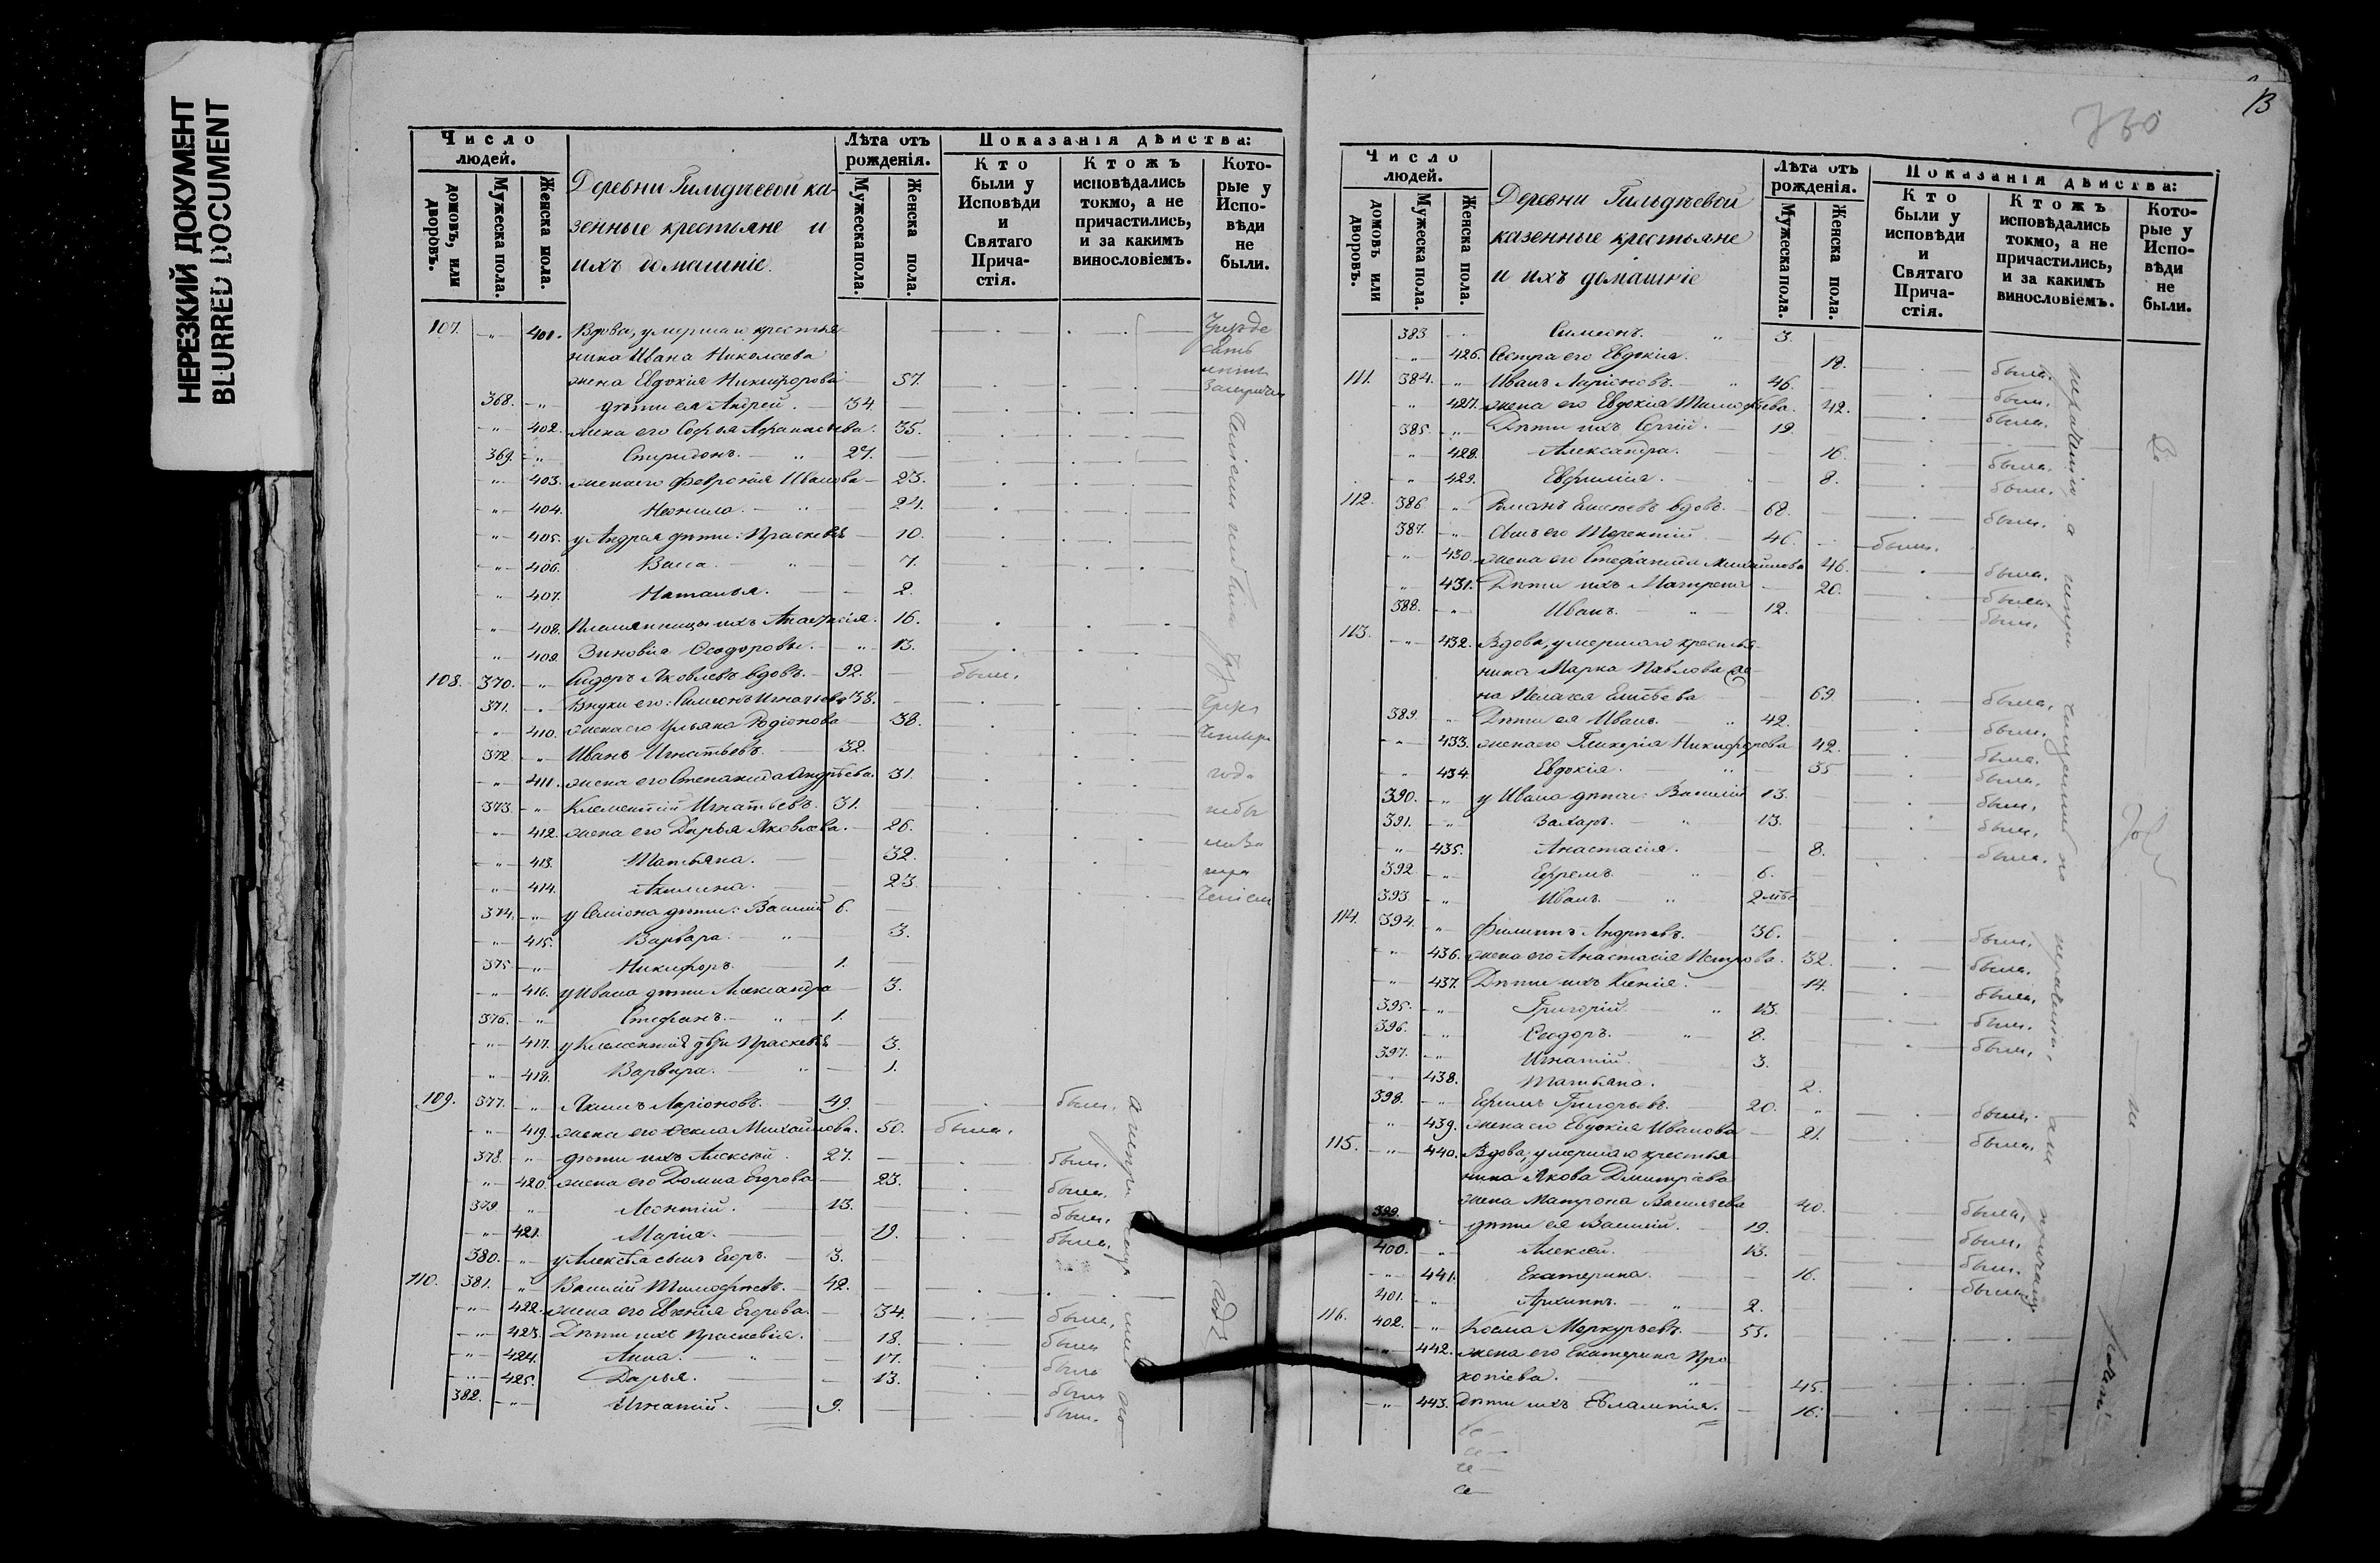 НЕРЕЗКИЙ ДОКУМЕНТ
BLURRED DOCUMENT
13
Число людей.
домовъ, или дворовъ.
Мужеска пола.
Женска пола.
Деревни Гильдѣевой ка-
зенные крестьяне и
ихъ домашніе.
Лѣта отъ рожденія.
Мужеска пола.
Женска пола.
Показанія дѣйства:
Кто были у Исповѣди и Святаго Прича-стія.
Ктожъ исповѣдались токмо, а не причастились, и за какимъ винословіемъ.
Кото-рые у Испо-вѣди не были.
107. " 401. Вдова, умершаго крестья-
нина Ивана Николаева
жена Евдокія Никифорова 57.
368. " дѣти ея Андрей. 34.
" 402. жена его Софья Афанасьева. 35.
369. " Спиридонъ. 27.
" 403. жена его Феврониія Иванова 23.
" 404. Неонила. 24.
" 405. у Андрея дѣти: Праскевія 10.
" 406. Васса. 7.
" 407. Наталья. 2.
" 408. Племянницы ихъ Анастасія. 16.
" 409. Зиновія Ѳеодоровы. 13.
108. 370. " Сидоръ Яковлевъ вдовъ. 92. былъ.
371. " Внуки его: Симеонъ Игнатьевъ 38.
" 410. жена его Ульяна Родіонова 38.
372 " Иванъ Игнатьевъ. 32.
" 411. жена его Степанида Андрѣева. 31.
373. " Клементій Игнатьевъ. 31.
" 412. жена его Дарья Яковлева. 26.
" 413. Татьяна. 32.
" 414. Акилина. 23
374. " у Семіона дѣти: Василій 6.
" 415. Варвара. 3.
375. " Никифоръ. 1.
" 416. у Ивана дѣти Александра 3.
376. " Стефанъ. 1.
" 417. у Клементія дѣти Праскевія 3.
" 418. Варвара. 1.
109. 377. " Якимъ Ларіоновъ. 49. былъ.
" 419. жена его Ѳекла Михайлова. 50. была.
378. " дѣти ихъ Алексѣй. 27. былъ.
" 420. жена его Домна Егорова 23. была.
379. " Леонтій. 13. былъ.
" 421. Марія. 19. была.
380. " у Алексѣя сынъ Егоръ. 3.
110. 381. " Василій Тимофѣевъ. 42.
" 422. жена его Евгенія Егорова. 34. была.
" 423. Дѣти ихъ Праскевія. 18. была
" 424. Анна. 17. была
" 425. Дарья. 13. была
382. " Игнатій. 9. былъ.
Число людей.
домовъ или дворовъ.
Мужеска пола.
Женска пола.
Деревни Гильдѣевой
казенные крестьяне
и ихъ домашніе
Лѣта отъ рожденія.
Мужеска пола.
Женска пола.
Показанія дѣйства:
Кто были у исповѣди и Святаго Прича-стія.
Ктожъ исповѣдались токмо, а не причастились, и за какимъ винословіемъ.
Кото-рые у Испо-вѣди не были.
383 Симеонъ. 3.
" 426. Сестра его Евдокія. 18. была.
111. 384. " Иванъ Ларіоновъ. 46. былъ.
" 427. жена его Евдокія Тимофѣева. 42. была.
385. " Дѣти ихъ Сергій. 19.
" 428. Александра. 16. была.
" 429. Евфимія. 8. была.
112. 386. " Романъ Елисѣевъ вдовъ. 68. былъ.
387. " Сынъ его Терентій 46. былъ.
" 430. жена его Стефанида Михайлова 46. была.
" 431. Дѣти ихъ Матрена 20. была.
388. " Иванъ. 12. былъ.
113. " 432. Вдова, умершаго крестья-
нина Марка Павлова же-
на Пелагея Елисѣева 69. была.
389. " Дѣти ея Иванъ. 42. былъ.
" 433. жена его Гликерія Никифорова 42. была.
" 434. Евдокія. 35 была.
390. " у Ивана дѣти: Василій 13. былъ.
391. " Захаръ. 13. былъ.
" 435. Анастасія. 8. была.
392 " Ефремъ. 6.
393. " Иванъ. 2
114. 394. " Филиппъ Андреевъ. 36. былъ.
" 436. жена его Анастасія Петрова. 32. была.
" 437. Дѣти ихъ Ксенія. 14. была.
395. " Григорій. 13. былъ.
396. " Ѳеодоръ. 8. былъ.
397. " Игнатій. 3.
438. Татьяна. 2.
398. " Ефимъ Григорьевъ. 20. былъ.
" 439. жена его Евдокія Иванова 21. была.
115. " 440. Вдова, умершаго крестья-
нина Якова Дмитріева
жена Матрона Васильева 40. была.
399. дѣти ея Василій. 19. былъ.
400. " Алексѣй. 13. былъ.
" 441. Екатерина. 16. была.
401. " Архиппъ. 2.
116. 402. " Косма Меркурьевъ. 55.
" 442. жена его Екатерина Про-
копіева. 45.
" 443. Дѣти ихъ Евлампія. 16.